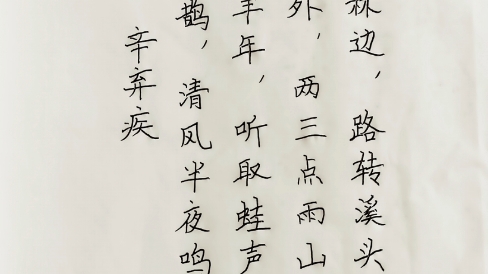 林边，路转溪头
外，两三点雨山
丰年，听取蛙声
鹊，清风半夜鸣
辛弃疾